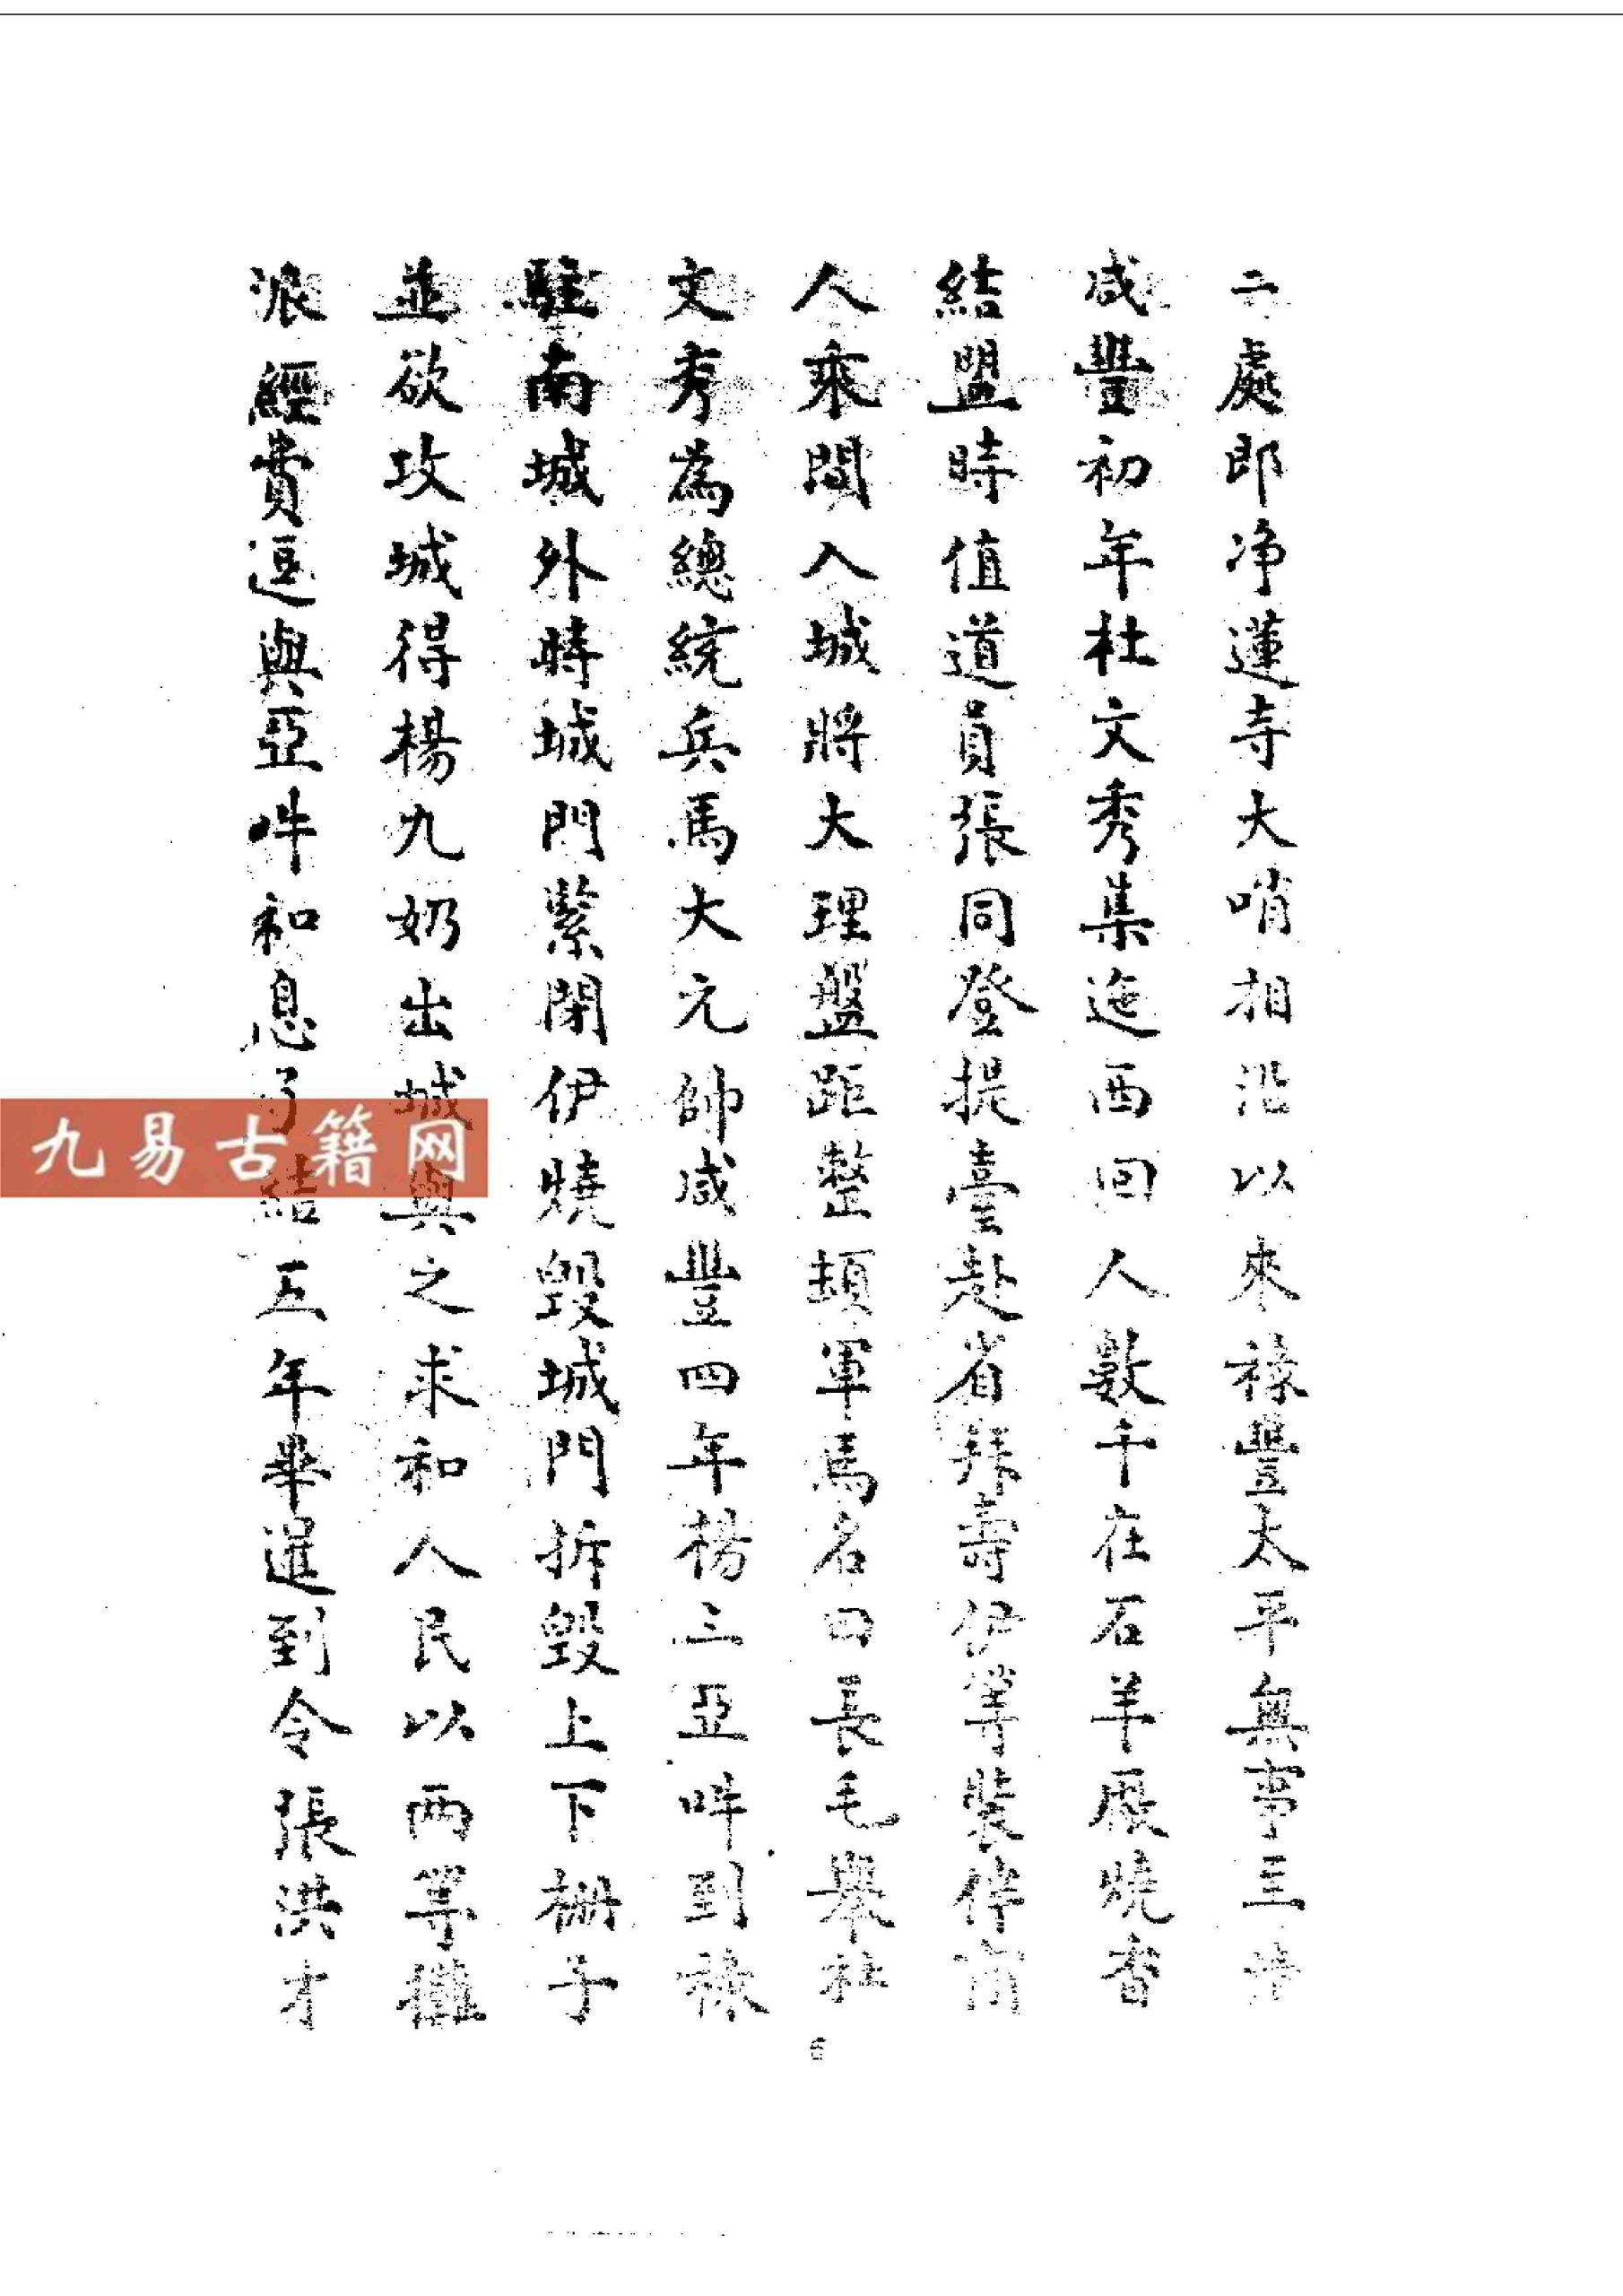 二處即净蓮寺大哨相沿以來祿豐太平無事至清
咸豐初年杜文秀集迤西回人數千在石羊厰燒香
結盟時值道員張同登提臺赴省拜壽伊等裝伴商
人乘間入城將大理盤距整頓軍馬名曰長毛舉杜
文秀為總統兵馬大元帥咸豐四年楊三亞吽到祿
駐南城外時城門緊閉伊燒毀城門拆毀上下柵子
並欲攻城得楊九奶出城與之求和人民以两等攤
派經費逗與亞吽和息了結五年畢暹到令張洪才
6
九易古籍网